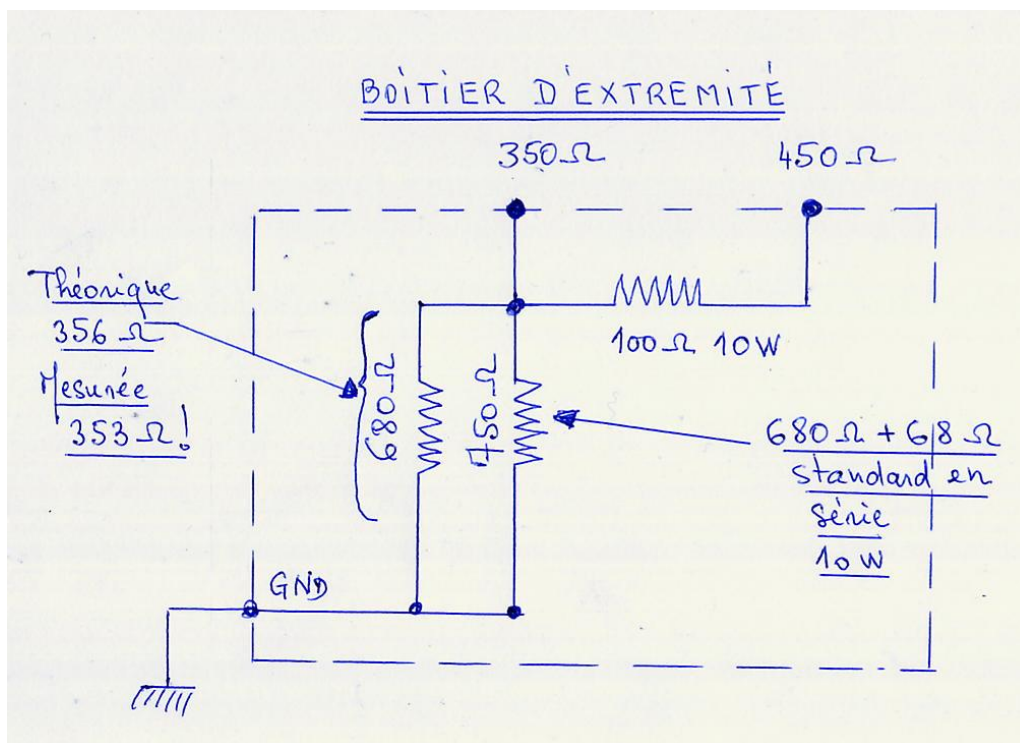 BOÎTIER D'EXTREMITÉ
350Ω
450Ω
Théorique
356 Ω
Mesurée
353 Ω!
680Ω
750Ω
100Ω 10W
680Ω + 68Ω
standard en
série
10W
GND